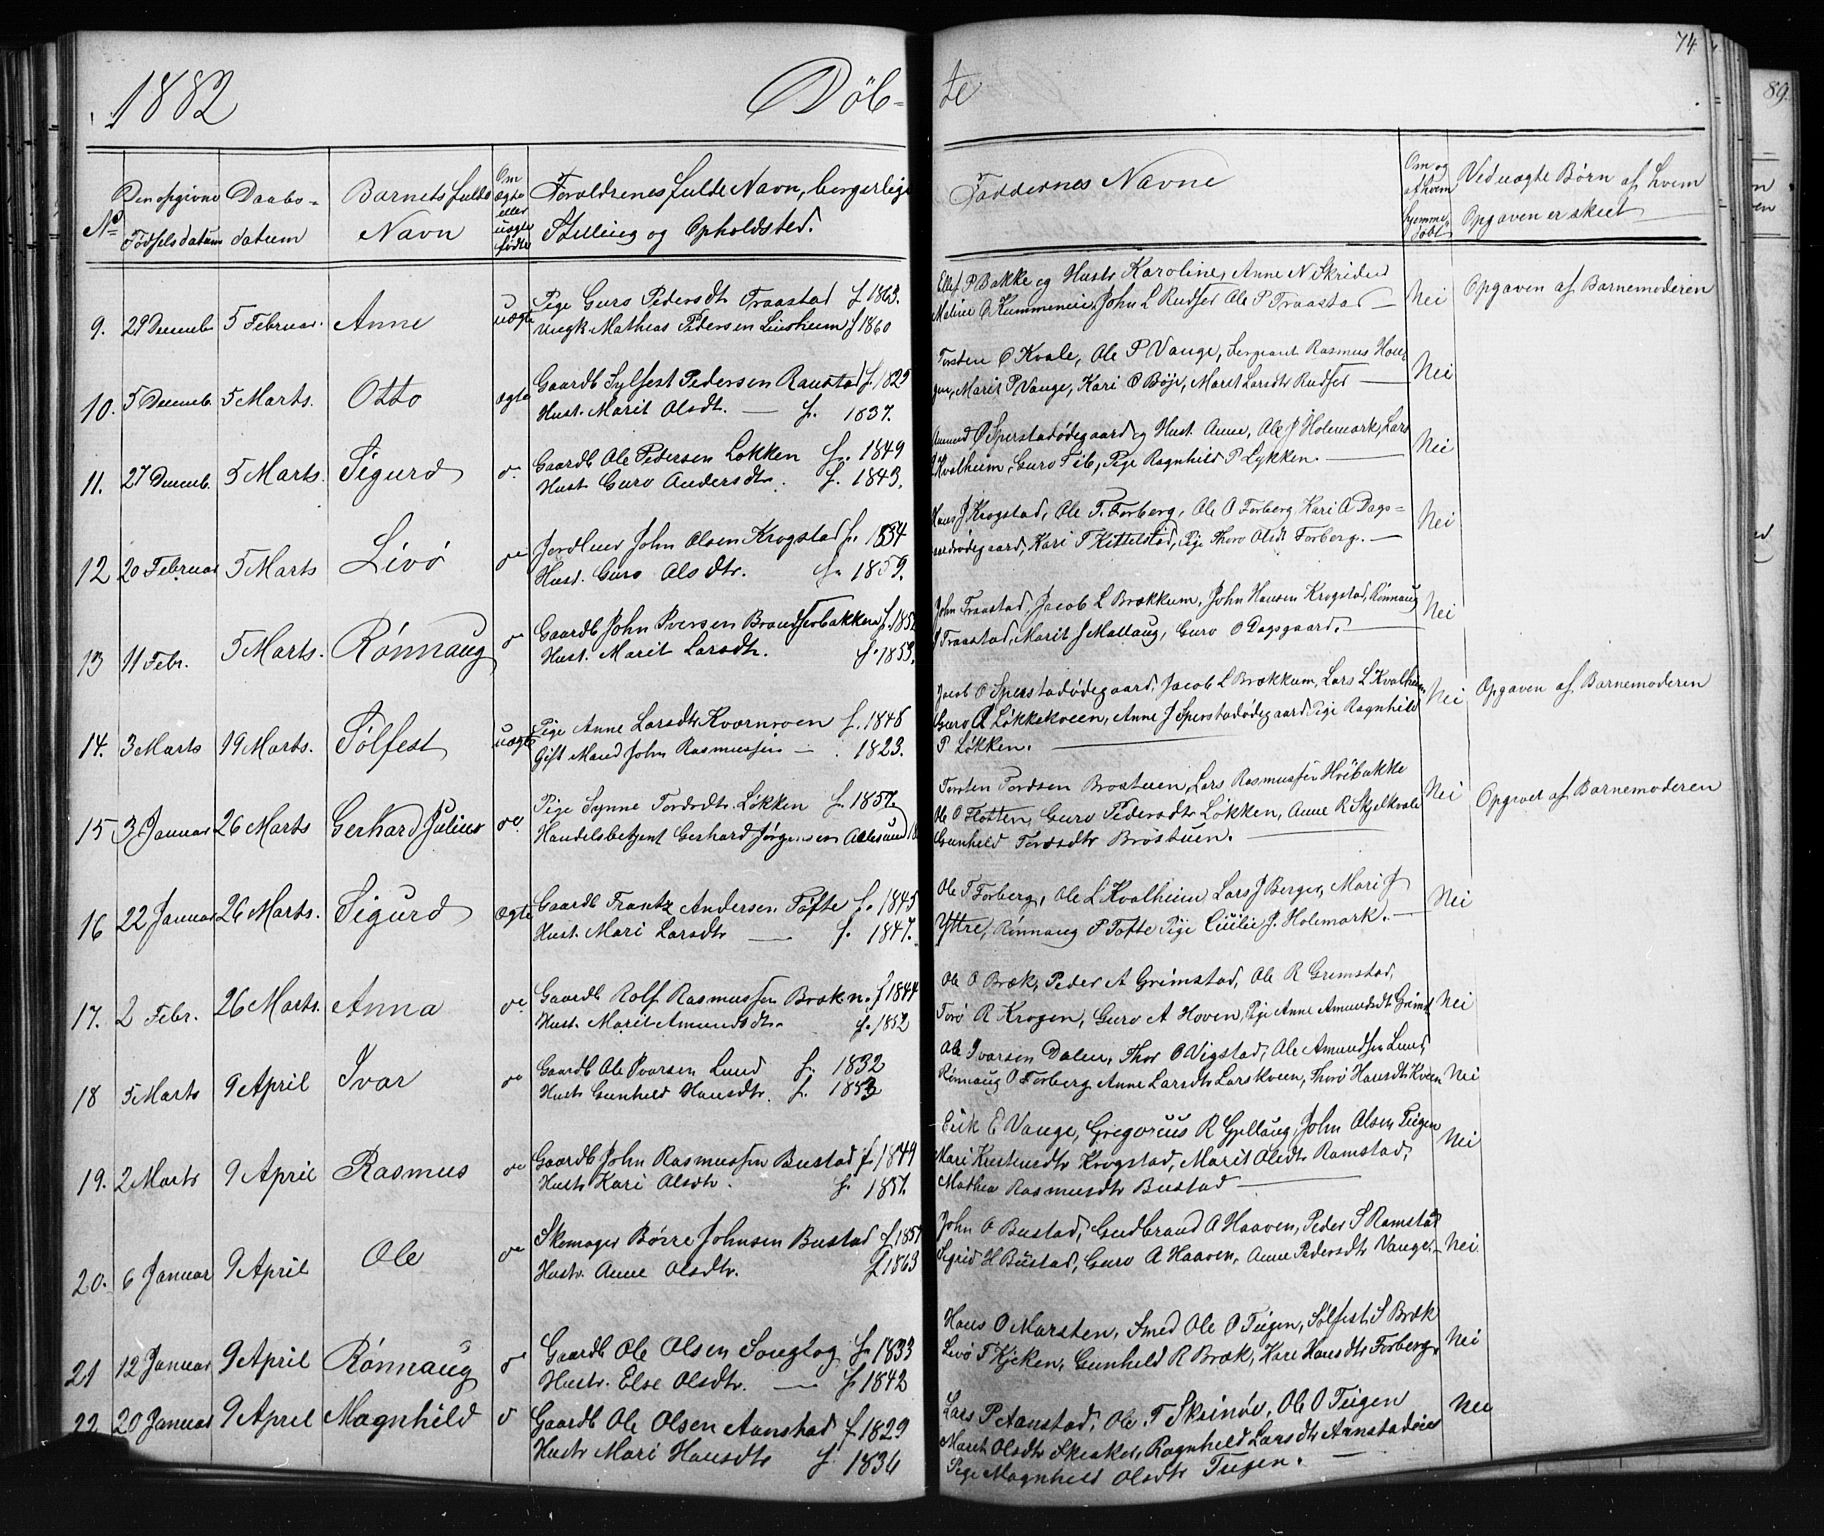 1882 Döb-
te 74
89
No Den opgivne Fødselsdatum Daabs-datum Barnets fulde Navn Om ægte eller uægte født Forældrenes fulde Navn, borgerlige Stilling og Opholdsted.
Faddernes Navne Om og af hvem hjemmedøbt Ved uægte Børn af hvem Opgaven er skeet
9. 29 Decemb 5 Februar. Anne uægte Pige Guro Pedersdt Fraastad f 1863.
Ungk. Mathias Pedersen Liusheim f 1860
Ellef P Bakke og Hustr Karoline, Anne N Skridud Nei Opgaven af Barnemoderen
Maline O Kummenei, John L Rudser Ole P Fraastad
10. 5 Decemb. 5 Marts. Otto ægte Gaardb Sylfest Pedersen Raustad f. 1825
Hust. Marit Olsdt. — f. 1837.
Torsten O Kvale, Ole P Vange, Sergeant Rasmus Hou-
gen, Marit P Vange, Kari O Bøje, Marit Larsdtr Rudser — Nei
11. 27 Decemb. 5 Marts. Sigurd o. Gaardb Ole Pedersen Løkken f. 1849
Hust Guro Andersdtr. f. 1843.
Amund O Sperstadødegaard og Hust. Anne, Ole J Holemark, Lars Nei
L Kvalheim, Guro Fib, Pige Ragnhild P Lykken. —
12 20 Februar 5 Marts Livö o Jordbuer John Olsen Krogstad f. 1854
Hust. Guro Olsdtr. f. 1859.
Hans J Krogstad, Ole T. Forberg, Ole O Forberg Kari A Dags- Nei
ardødegaard, Kari T Kittelstad, Pige Thoro Olsdt Forberg. —
13 11 Febr. 5 Marts. Rønnaug o Gaardb John Iversen Brandserbakken f. 1852
Hust. Marit Larsdtr. f. 1853.
John Fraastad, Jacob L Brækkum, John Hansen Krogstad, Rønnaug Nei
J Fraastad, Marit J Mallaug, Guro O Dagsgaard. —
14. 3 Marts 19 Marts. Sölfest uægte Pige Anne Larsdtr Kværnvoen f. 1848
Gift Mand John Rasmussen — 1823.
Jacob O Sperstadødegaard, Jacob L Brækkum, Lars L Kvalheim Nei Opgaven af Barnemoderen
Guro R Løkkekveen, Anne J Sperstadødegaard Pige Ragnhild
P Løkken. —
15 31 Januar 26 Marts Gerhard Julius o Pige Synne Tordsdtr Løkken f. 1857
Handelsbetjent Gerhard Jørgensen Aalesund
Torsten Tordsen Brøstuen, Lars Rasmussen Høibakke Nei Opgivet af Barnemoderen
Ole O Flotten, Guro Pedersdtr Løkken, Anne R Skjelkvale
Gunhild Tordsdtr Brøstuen. —
16 22 Januar 26 Marts. Sigurd ægte Gaardb Frantz Andersen Tøfte f. 1845
Hust. Mari Larsdtr — f. 1847.
Ole T Forberg, Ole L Kvalheim, Lars J Berger, Mari J Nei
Yttre, Rønnaug P Tøfte Pige Cicilie J. Holemark. —
17. 2 Febr. 26 Marts. Anna o Gaardb Rolf Rasmussen Brækn. f 1844
Hust. Marit Amundsdtr. f. 1852
Ole O Bræk, Peder A Grimstad, Ole R Grimstad, Nei
Torø R Krogen, Guro A Hoven, Pige Anne Amundsdt Grimst
18 5 Marts 9 April Ivar o Gaardb Ole Ivarsen Lund f. 1832
Hustr Gunhild Hansdtr. f. 1853
Ole Ivarsen Dalen, Thor O Vigstad, Ole Amundsen Lund, Nei
Rønnaug O Forberg, Anne Larsdtr Larskveen, Thorø Hansdtr Kveen
19. 2 Marts 9 April Rasmus o Gaardb John Rasmussen Bustad f 1849
Hustr Kari Olsdtr. f. 1857.
Erik E Vange, Gregorius R Gjellaug, John Olsen Teigen Nei
Mari Kristensdtr Krogstad, Marit Olsdtr Ramstad,
Mathea Rasmusdtr Bustad —
20. 6 Januar 9 April Ole o Skomager Børre Johnsen Bustad f 1857
Hustr. Anne Olsdtr. f 1863
John O Bustad, Gudbrand A Haaven, Peder S Ramstad Nei
Sigrid H Bustad, Guro A Haaven, Anne Pedersdtr Vange. —
21 12 Januar 9 April Rønnaug o Gaardb Ole Olsen Songtog f. 1833
Hustr. Else Olsdtr. — f. 1842
Hans O Marsten, Smed Ole O Teigen, Sølfest S Bræk Nei
Livø T Kjeken, Gunhild R Bræk, Kari Hansdtr Forberg.
22 20 Januar 9 April Magnhild o Gaardb Ole Olsen Aanstad f 1829
Hustr Mari Hansdtr f. 1836
Lars P Aanstad, Ole T Skeinøe, Ole O Teigen Nei
Marit Olsdtr Skeaker, Ragnhild Larsdtr Arnstadeie
Pige Magnhild Olsdtr Teigen. —